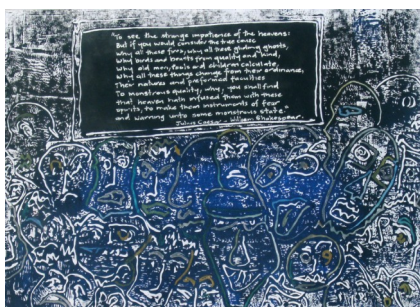 "To see the strange impatience of the heavens:
But if you would consider the true cause
Why all these fires, why all these gliding ghosts,
Why birds and beasts from quality and kind,
Why old men, fools and children calculate,
Why all these things change from their ordinance,
Their natures and preformed faculties
To monstrous quality, why, you shall find
that heaven hath infused them with these
spirits, to make them instruments of fear
and warning unto some monstrous state"
Julius Caesar - William Shakespear.